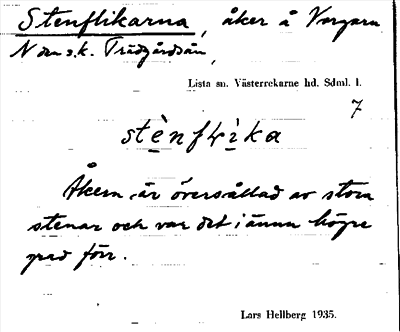 Stenflikarna, åker å Vargarn
N den s.k. Trädgårdsån,
Lista sn. Västerrekarne hd. Sdml. l.
7
stènflìka
Åkern är översållad av stora
stenar och var det i ännu högre
grad förr.
Lars Hellberg 1935.